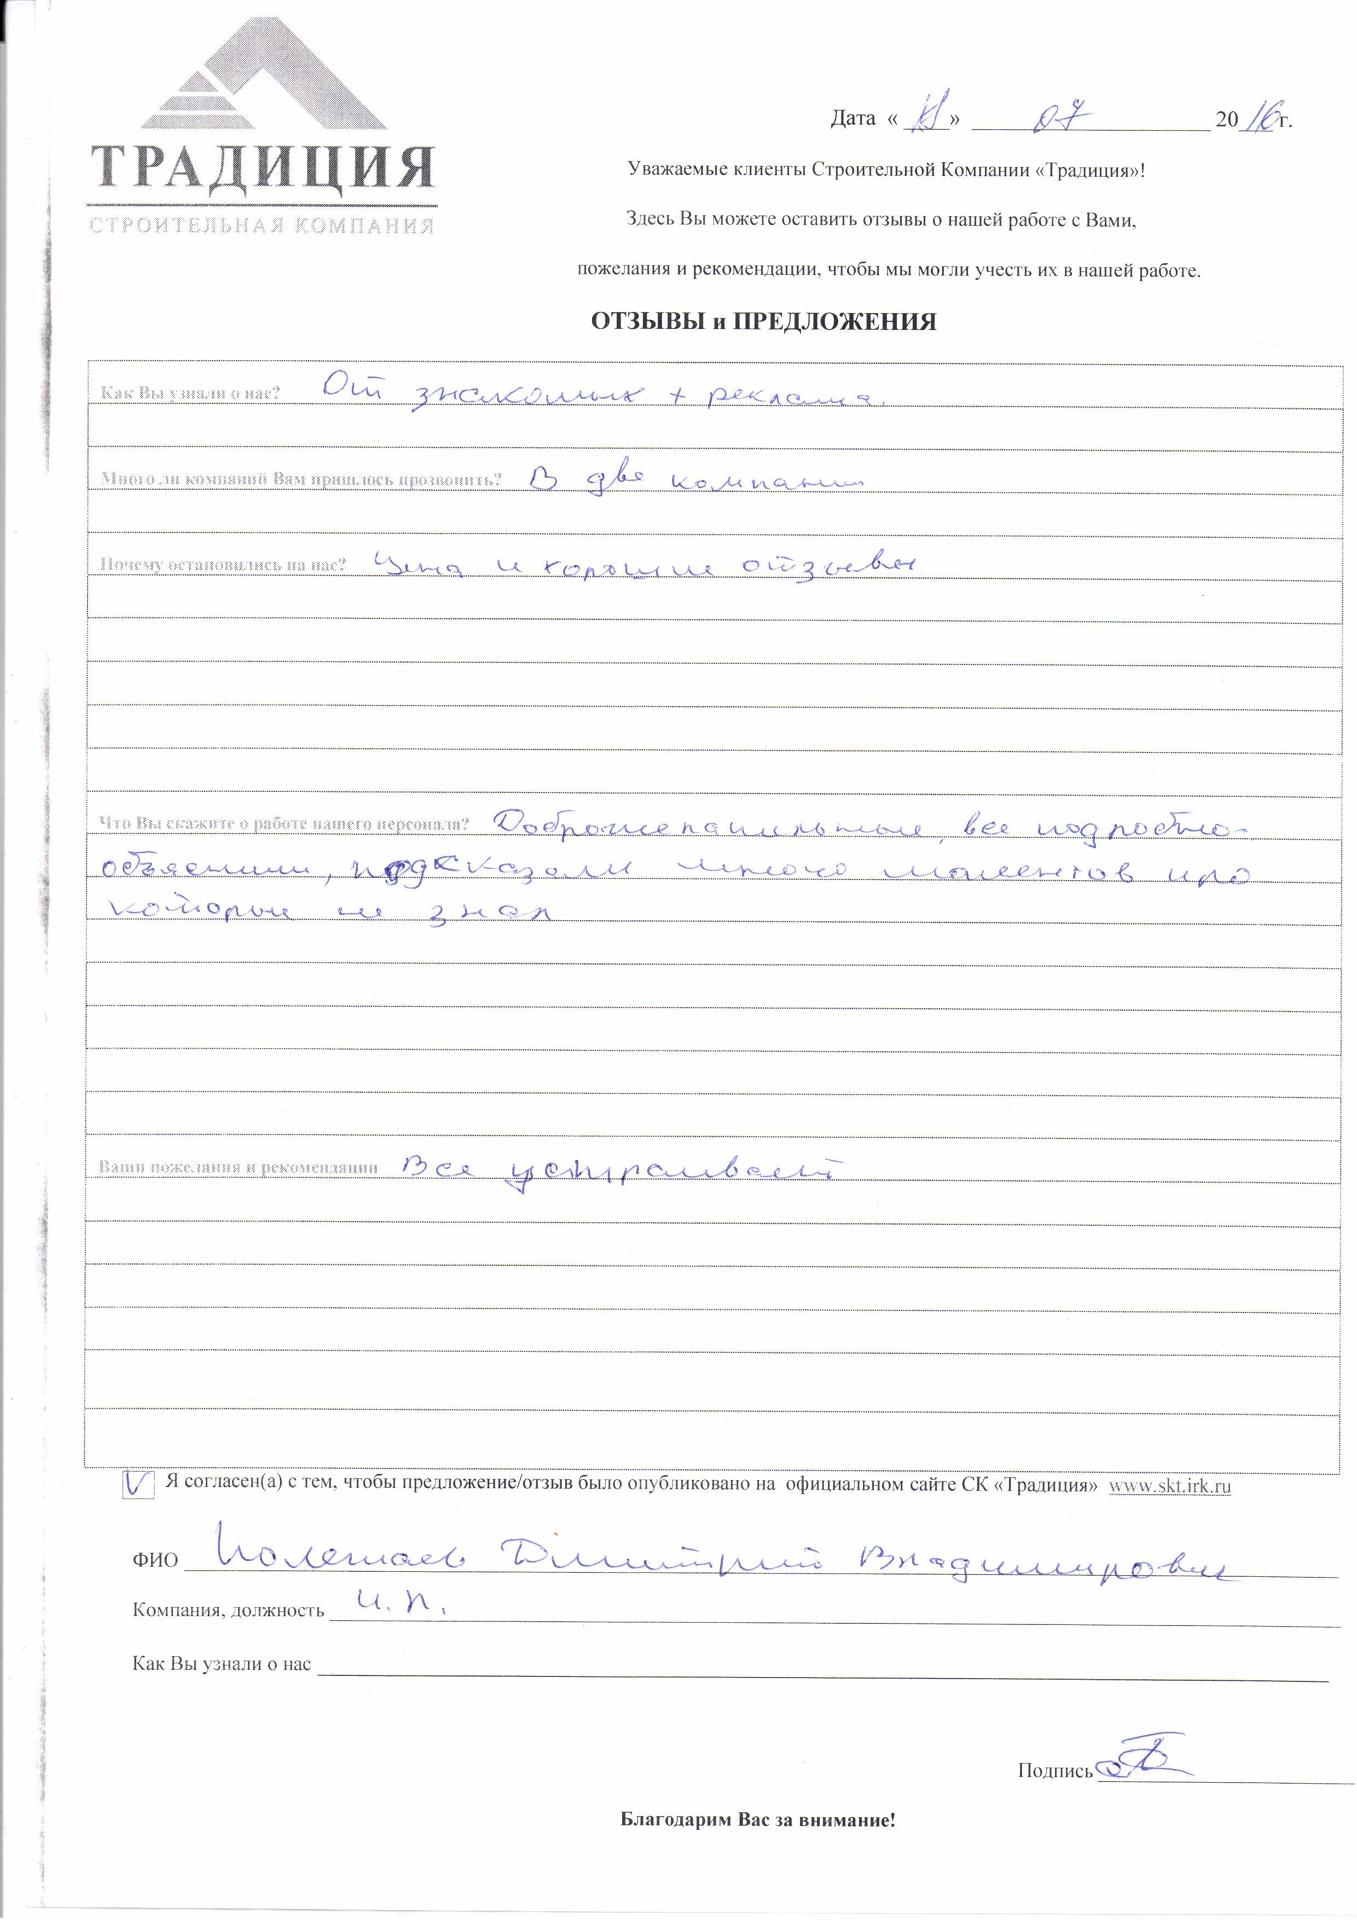 ТРАДИЦИЯ
СТРОИТЕЛЬНАЯ КОМПАНИЯ
Дата « » 07 2016г.
Уважаемые клиенты Строительной Компании «Традиция»!
Здесь Вы можете оставить отзывы о нашей работе с Вами,
пожелания и рекомендации, чтобы мы могли учесть их в нашей работе.
ОТЗЫВЫ и ПРЕДЛОЖЕНИЯ
Как Вы узнали о нас? От знакомых + реклама.
Много ли компаний Вам пришлось прозвонить? В две компании
Почему остановились на нас? Цена и хорошие отзывы
Что Вы скажите о работе нашего персонала? Доброжелательные, все подробно
объяснили, подсказали много моментов про
которые не знал
Ваши пожелания и рекомендации Все устраивает
V Я согласен(а) с тем, чтобы предложение/отзыв было опубликовано на официальном сайте СК «Традиция» www.skt.irk.ru
ФИО Дмитрий Владимирович
Компания, должность И.П.
Как Вы узнали о нас
Подпись
Благодарим Вас за внимание!